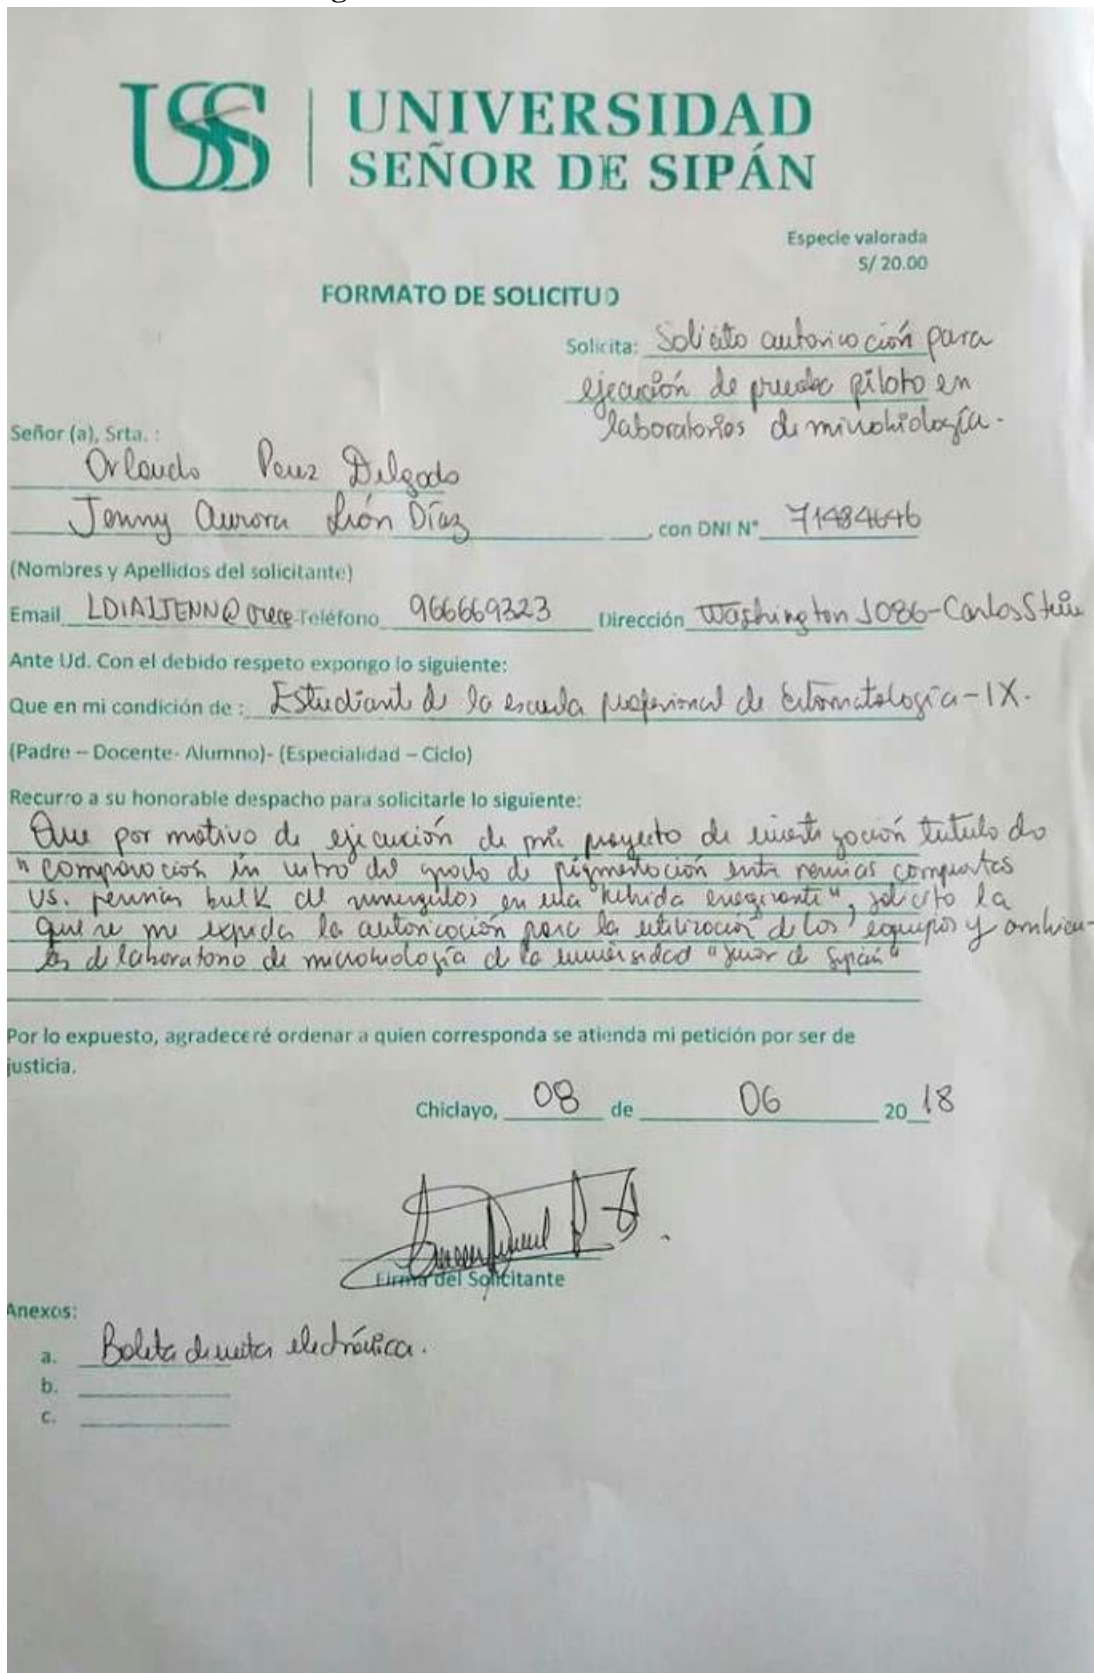 USS
UNIVERSIDAD
SEÑOR DE SIPÁN
Especie valorada
S/ 20.00
FORMATO DE SOLICITUD
Solicita: Solicito autorización para
ejecución de prueba piloto en
laboratorios de microbiología.
Señor (a), Srta. :
Orlando Perez Delgado
Jenny Aurora León Díaz, con DNI N° 71484646
(Nombres y Apellidos del solicitante)
Email LDIAZJENN@crece Teléfono 966669323 Dirección Washington 1086-Carlos
Ante Ud. Con el debido respeto expongo lo siguiente:
Que en mi condición de : Estudiante de la escuela profesional de Estomatología-IX.
(Padre – Docente- Alumno)- (Especialidad – Ciclo)
Recurro a su honorable despacho para solicitarle lo siguiente:
Que por motivo de ejecución de mi proyecto de investigación titulado
"comparación in vitro del grado de pigmentación entre resinas compuestas
vs. resinas bulk al sumergirlos en una bebida energizante", solicito la
que se me expida la autorización para la utilización de los equipos y ambien-
tes de laboratorio de microbiología de la universidad "señor de Sipán"
Por lo expuesto, agradeceré ordenar a quien corresponda se atienda mi petición por ser de
justicia.
Chiclayo, 08 de 06 2018
Firma del Solicitante
Anexos:
a. Boleta de venta electrónica.
b.
c.